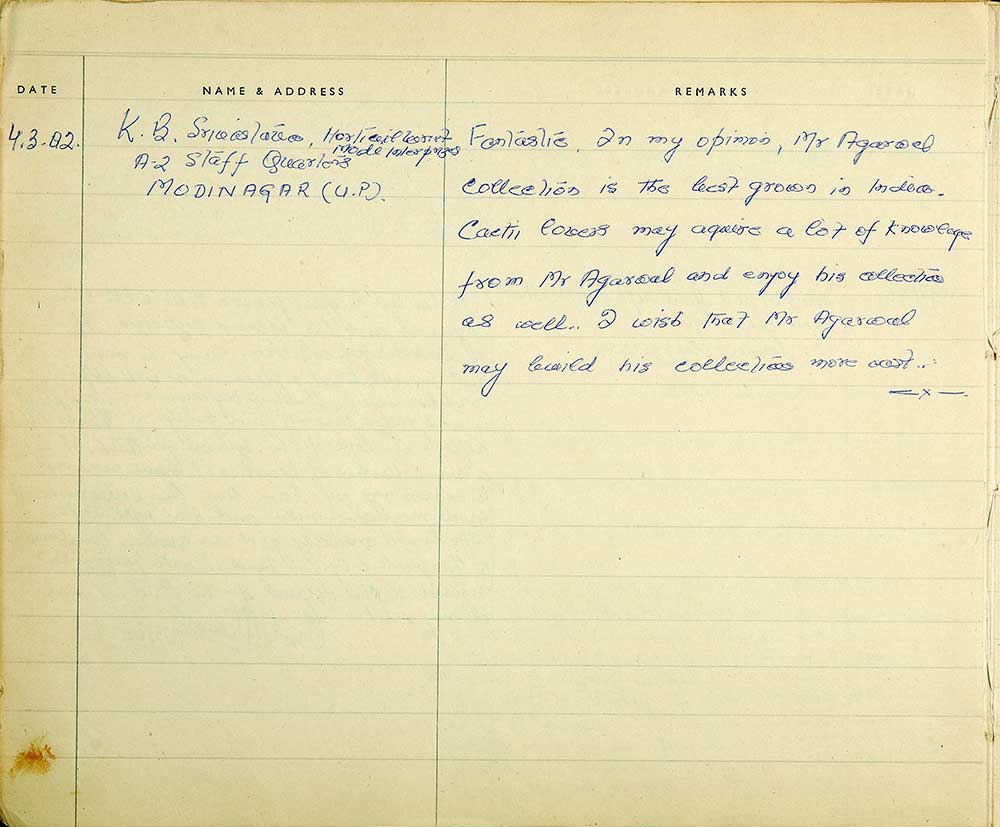 DATE NAME & ADDRESS REMARKS
4.3.82. K. B. Srivastava, Horticulturist
Modi Interprises
A-2 Staff Quarters
MODINAGAR (U.P).
Fantastic. In my opinion, Mr Agarwal
collection is the best grown in India.
Cacti lovers may aquire a lot of knowlege
from Mr Agarwal and enjoy his collection
as well.. I wish that Mr Agarwal
may build his collection more vast..
—x—.